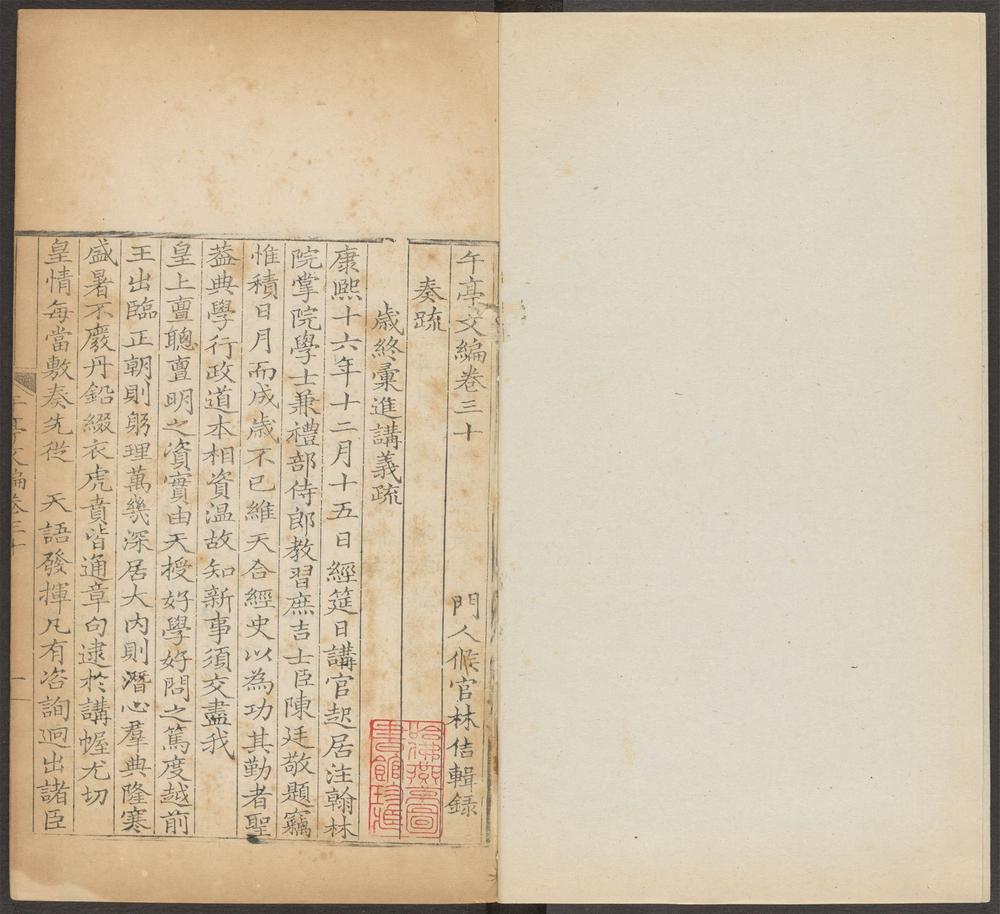 午亭文編卷三十
門人候官林佶輯錄
奏疏
歳終彙進講義疏
康熙十六年十二月十五日經筵日講官起居注翰林
院掌院學士兼禮部侍郎教習庶吉士臣陳廷敬題竊
惟積日月而成歳不已維天合經史以為功其勤者聖
葢典學行政道本相資温故知新事須交盡我
皇上亶聰亶明之資實由天授好學好問之篤度越前
王出臨正朝則躬理萬幾深居大内則潛心羣典隆寒
盛暑不廢丹鉛綴衣虎賁皆通章句逮於講幄尤切
皇情每當敷奏先從 天語發揮凡有咨詢迥出諸臣
午亭文編卷三十
一
哈佛燕京圖
書館珍藏